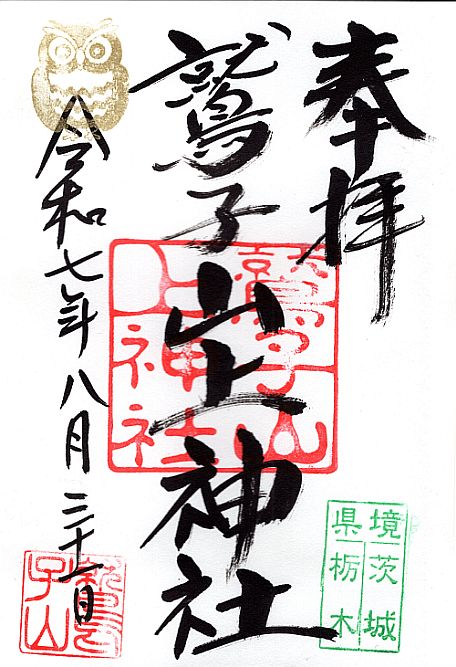 奉拝
鷲子山上神社
令和七年八月二十一日
鷲子山
上神社
鷲子山
県境
茨城
栃木